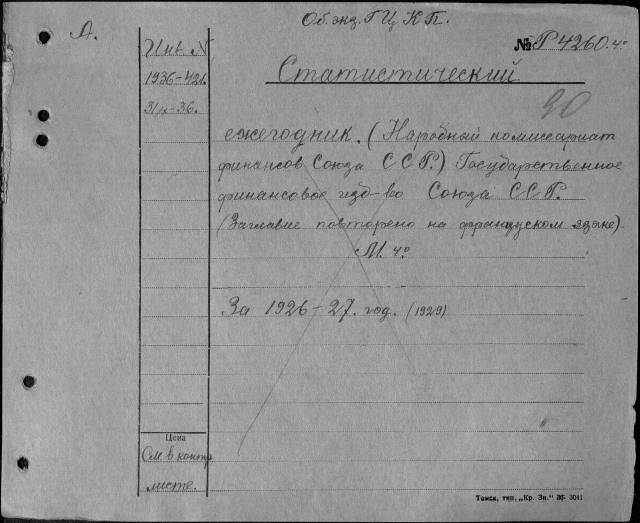 Об. энд. ГЦКП.
А.
№Р 4260.4°
Инв. N
1936-421.
31/X-36.
Статистический
90
ежегодник. (Народный комиссариат
финансов Союза ССР.) Государственное
финансовое изд-во Союза ССР.
(Заглавие повторено на французском языке).
М. 4°
За 1926-27. год. (1929)
Цена
См в контр.
листе.
Томск, тип. „Кр. Зн." 36 3041